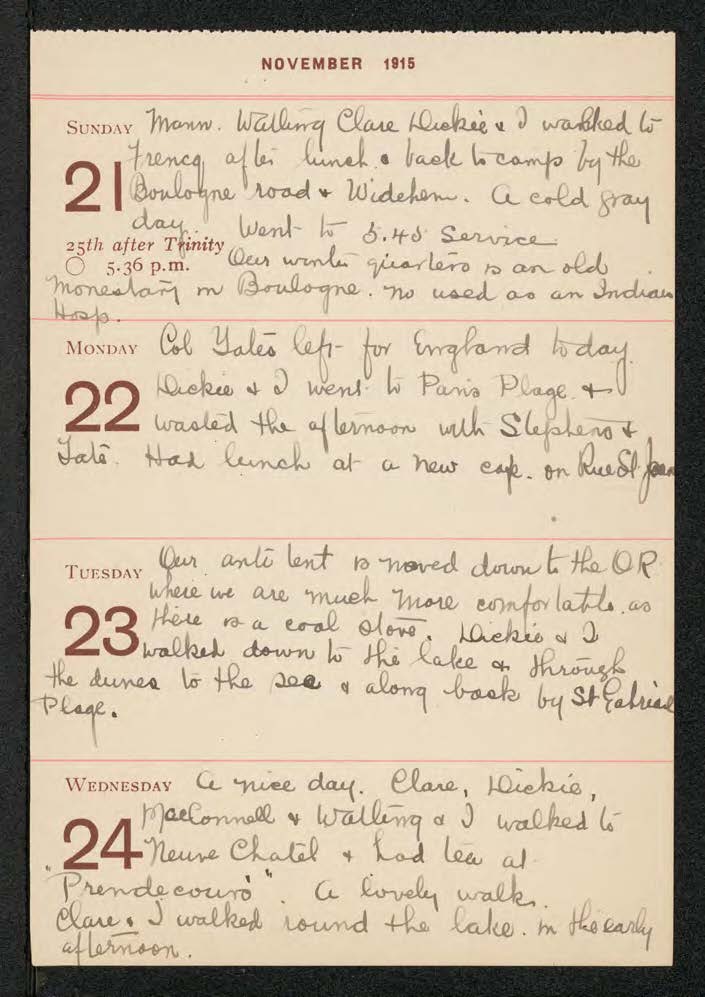 NOVEMBER 1915
SUNDAY Mann. Watling Clare Dickie & I walked to
21 Frencq after lunch & back to camp by the
Boulogne road & Widehem. A cold gray
day. Went to 5.45 Service
25th after Trinity Our winter quarters is an old
5.36 p.m.
Monestary in Boulogne. no used as an Indian
Hosp.
MONDAY Col Yates left for England today.
22 Dickie & I went to Paris Plage &
wasted the afternoon with Stephens &
Tate. Had lunch at a new cafe. on Rue St Jean
TUESDAY Our anti tent is moved down to the OR
where we are much more comfortable. as
23 there is a coal stove. Dickie & I
walked down to the lake & through
the dunes to the sea & along back by St Gabriel
Plage.
WEDNESDAY A nice day. Clare, Dickie,
MacConnell & Watling & I walked to
24 Neuve Chatel & had tea at
"Prendecouro". A lovely walk.
Clare & I walked round the lake. in the early
afternoon.